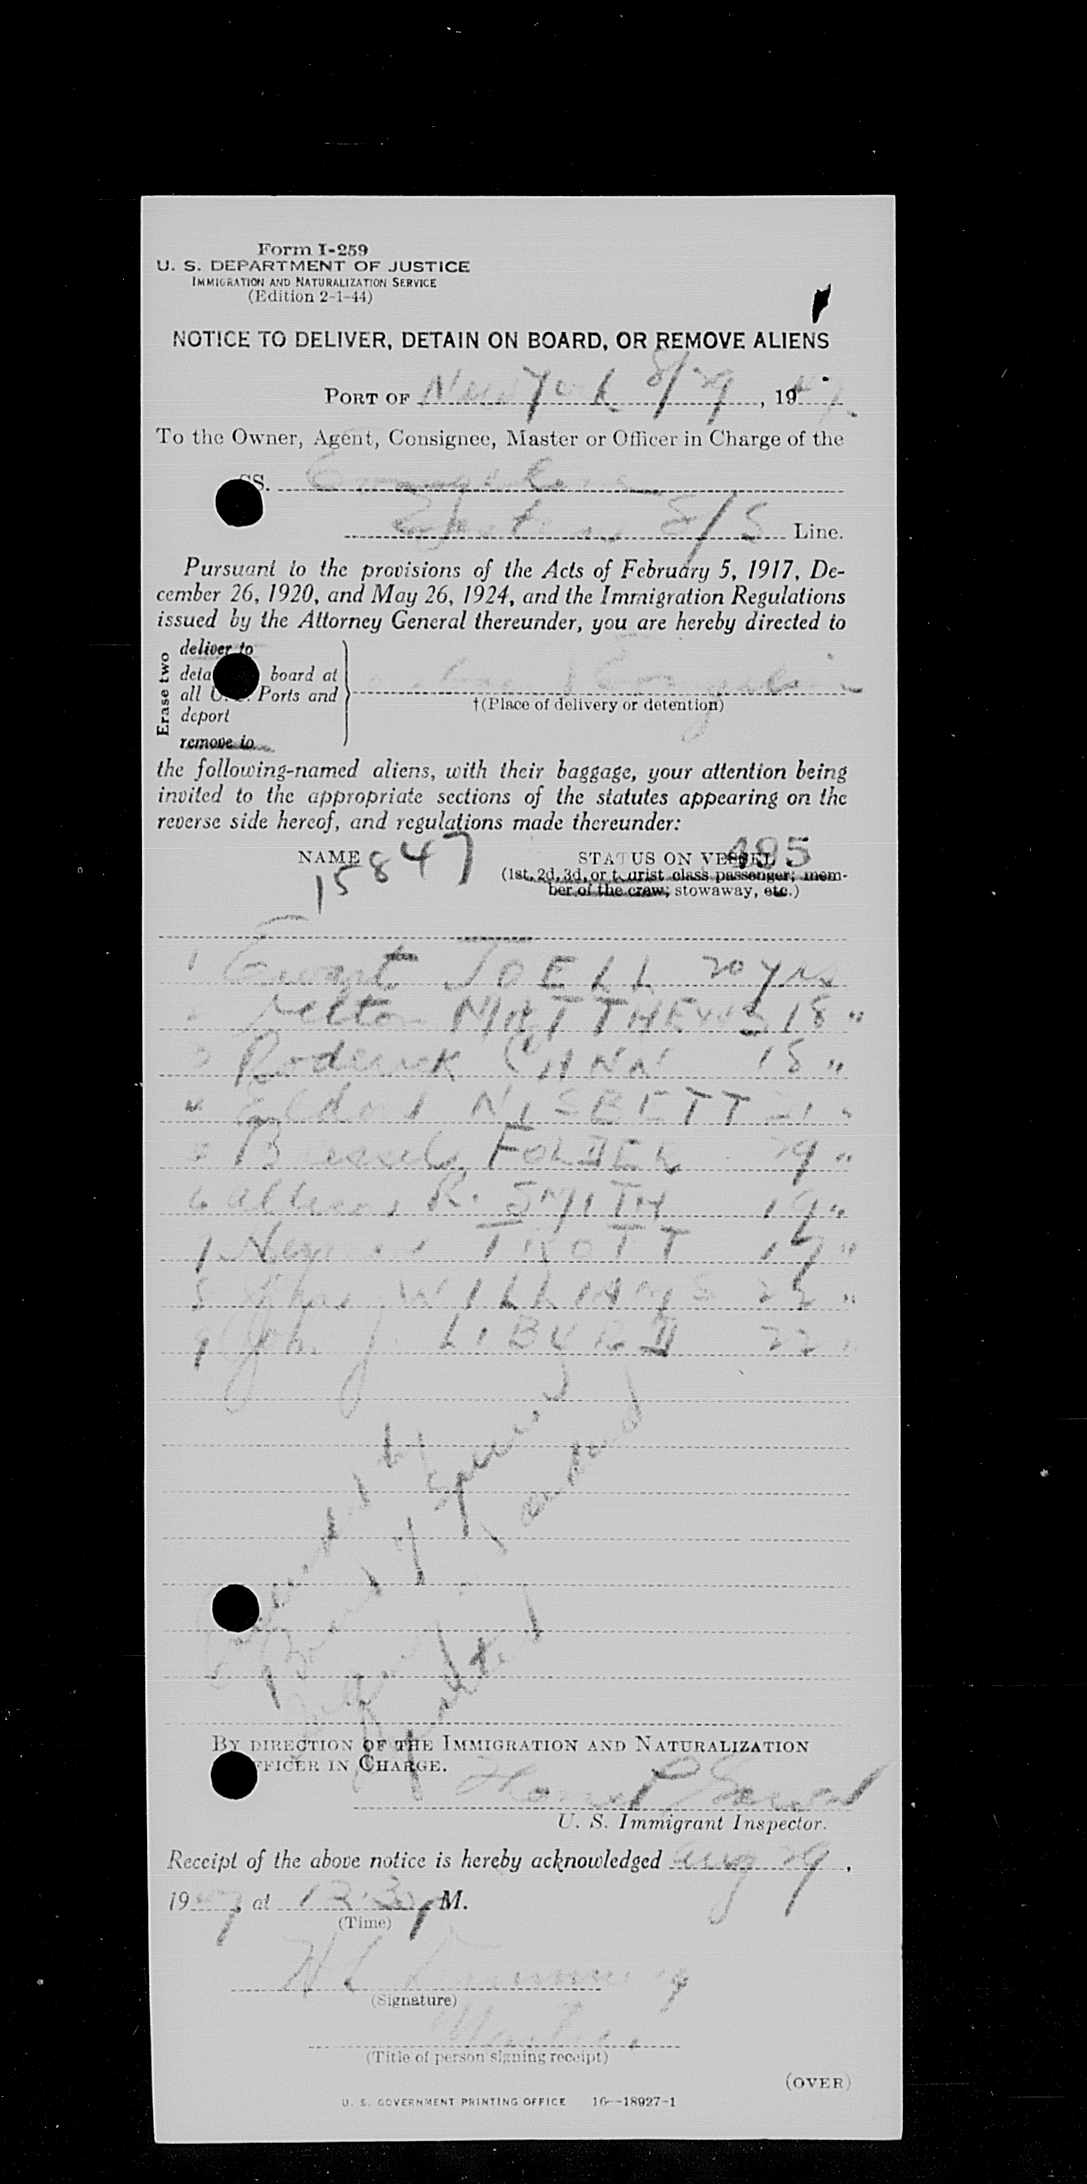 Form I-259
U. S. DEPARTMENT OF JUSTICE
IMMIGRATION AND NATURALIZATION SERVICE
(Edition 2-1-44)
NOTICE TO DELIVER, DETAIN ON BOARD, OR REMOVE ALIENS
PORT OF New York 8/29, 1947.
To the Owner, Agent, Consignee, Master or Officer in Charge of the
SS.
Eastern S/S Line.
Pursuant to the provisions of the Acts of February 5, 1917, De-
cember 26, 1920, and May 26, 1924, and the Immigration Regulations
issued by the Attorney General thereunder, you are hereby directed to
Erase two
deliver to
board at
all Ports and
deport
remove to
†(Place of delivery or detention)
the following-named aliens, with their baggage, your attention being
invited to the appropriate sections of the statutes appearing on the
reverse side hereof, and regulations made thereunder:
NAME STATUS ON VESSEL
15847 495
(1st, 2d, 3d, or tourist class passenger; mem-
ber of the crew; stowaway, etc.)
1 Ewart JOELL 20 yrs
MATTHEWS 18 "
3 Roderick CANN 18 "
4 NISBETT 21 "
5 FOLDER 29 "
6 R. SMITH 19 "
TROTT 19 "
8 John WILLIAMS 22 "
9 John J. LIBURD 22 "
by
Board of Special
and
BY DIRECTION OF THE IMMIGRATION AND NATURALIZATION
OFFICER IN CHARGE.
U. S. Immigrant Inspector.
Receipt of the above notice is hereby acknowledged Aug 29,
1947 at 12:30 P M.
(Time)
H L
(Signature)
Master
(Title of person signing receipt)
(OVER)
U. S. GOVERNMENT PRINTING OFFICE 16—18927-1